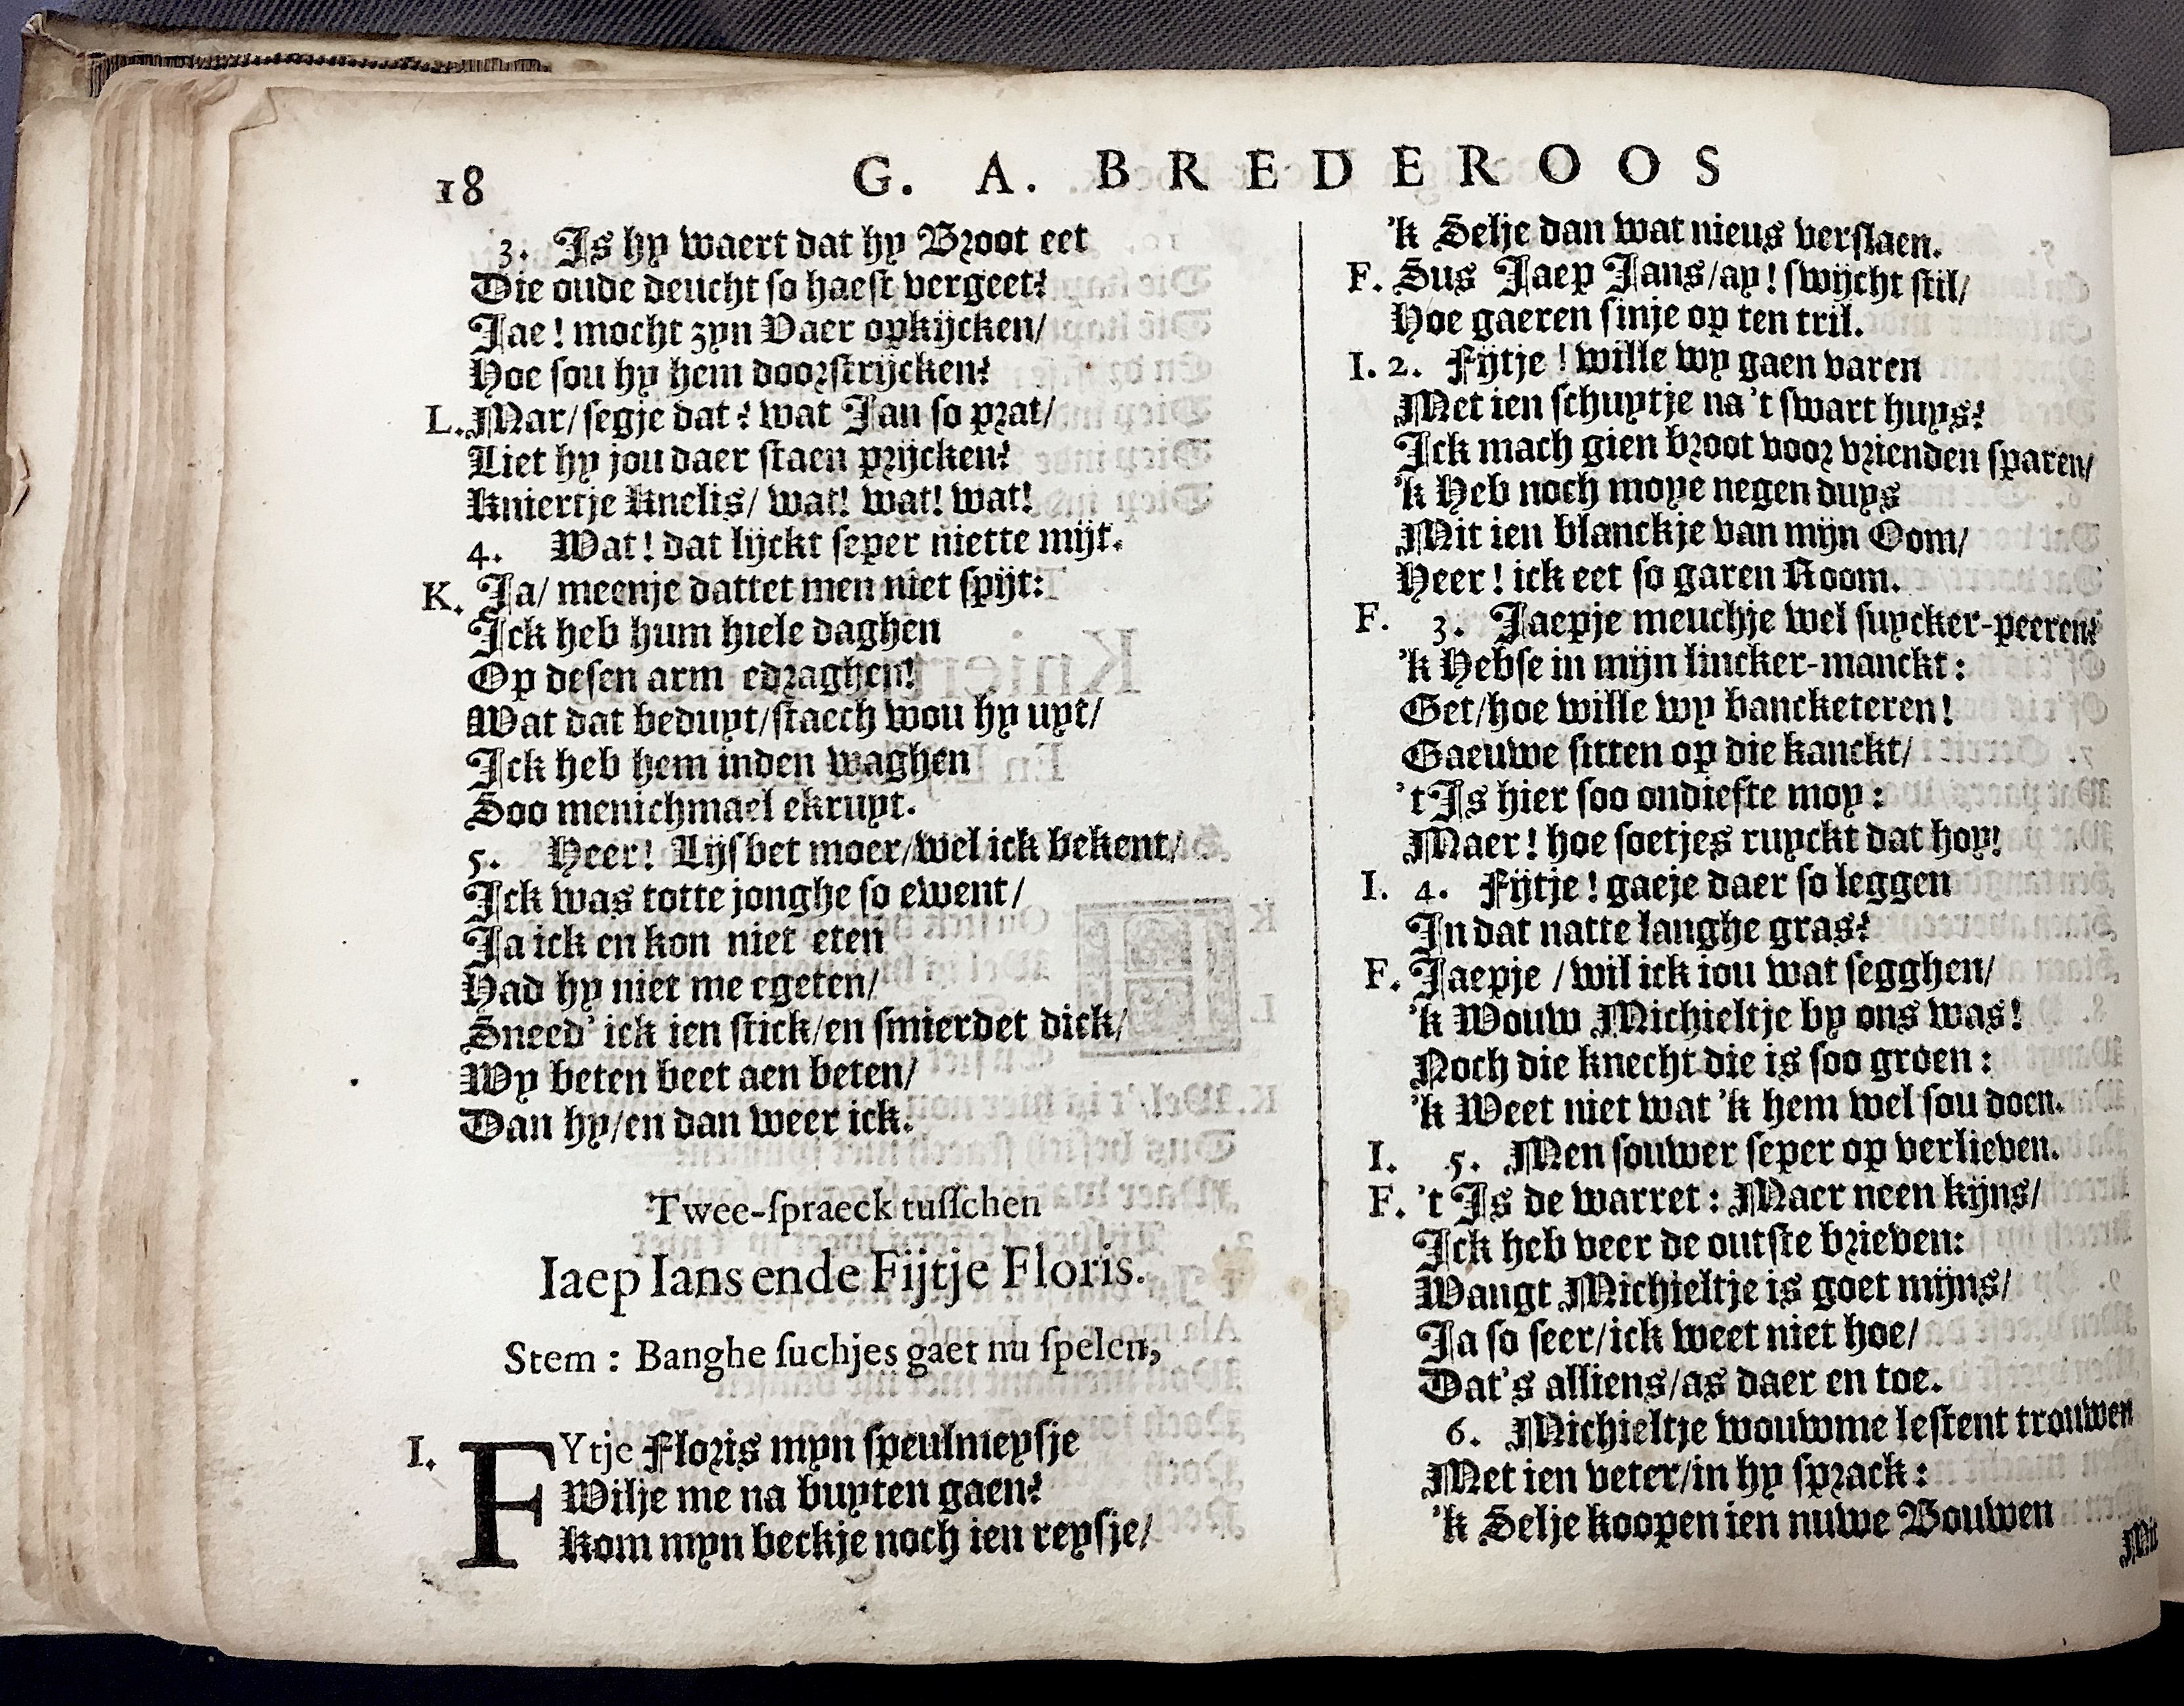 18
G. A. BREDEROOS
3. Is hy waert dat hy Broot eet
Die oude deucht so haest vergeet?
Jae! mocht zyn Vaer opkijcken/
Hoe sou hy hem doorstrijcken?
L. Mar/ segje dat? wat Jan so prat/
Liet hy jou daer staen prijcken?
Kniertje Knelis/ wat! wat! wat!
4. Wat! dat lijckt seper niette mijt.
K. Ja/ meenje dattet men niet spijt:
Ick heb hum hiele daghen
Op desen arm edraghen!
Wat dat beduyt/staech wou hy uyt/
Ick heb hem inden waghen
Soo menichmael ekruyt.
5. Heer! Lijsbet moer/wel ick bekent/
Ick was totte jonghe so ewent/
Ja ick en kon niet eten
Had hy niet me egeten/
Sneed' ick ien stick/en smierdet dick/
Wy beten beet aen beten/
Dan hy/en dan weer ick.
Twee-spraeck tusschen
Iaep Ians ende Fijtje Floris.
Stem: Banghe suchjes gaet nu spelen,
I. FYtje Floris myn speulmeysje
Wilje me na buyten gaen?
Kom myn beckje noch ien reysje/
'k Selje dan wat nieus verslaen.
F. Sus Jaep Jans/ay! swijcht stil/
Hoe gaeren sinje op ten tril.
I. 2. Fijtje! wille wy gaen varen
Met ien schuytje na 't swart huys?
Ick mach gien broot voor vrienden sparen/
'k Heb noch moye negen duys
Mit ien blanckje van mijn Oom/
Heer! ick eet so garen Room.
F. 3. Jaepje meuchje wel suycker-peeren?
'k Hebse in mijn lincker-manckt:
Get/hoe wille wy bancketeren!
Gaeuwe sitten op die kanckt/
't Is hier soo ondiefte moy:
Maer! hoe soetjes ruyckt dat hoy!
I. 4. Fijtje! gaeje daer so leggen
In dat natte langhe gras?
F. Jaepje/wil ick iou wat segghen/
'k Wouw Michieltje by ons was!
Noch die knecht die is soo groen:
'k Weet niet wat 'k hem wel sou doen.
I. 5. Men souwer seper op verlieven.
F. 't Is de warret: Maer neen kijns/
Ick heb veer de outste brieven:
Wangt Michieltje is goet mijns/
Ja so seer/ick weet niet hoe/
Dat's alliens/as daer en toe.
6. Michieltje wouwme lestent trouwen
Met ien veter/in hy sprack:
'k Selje koopen ien nuwe Bouwen
Mit